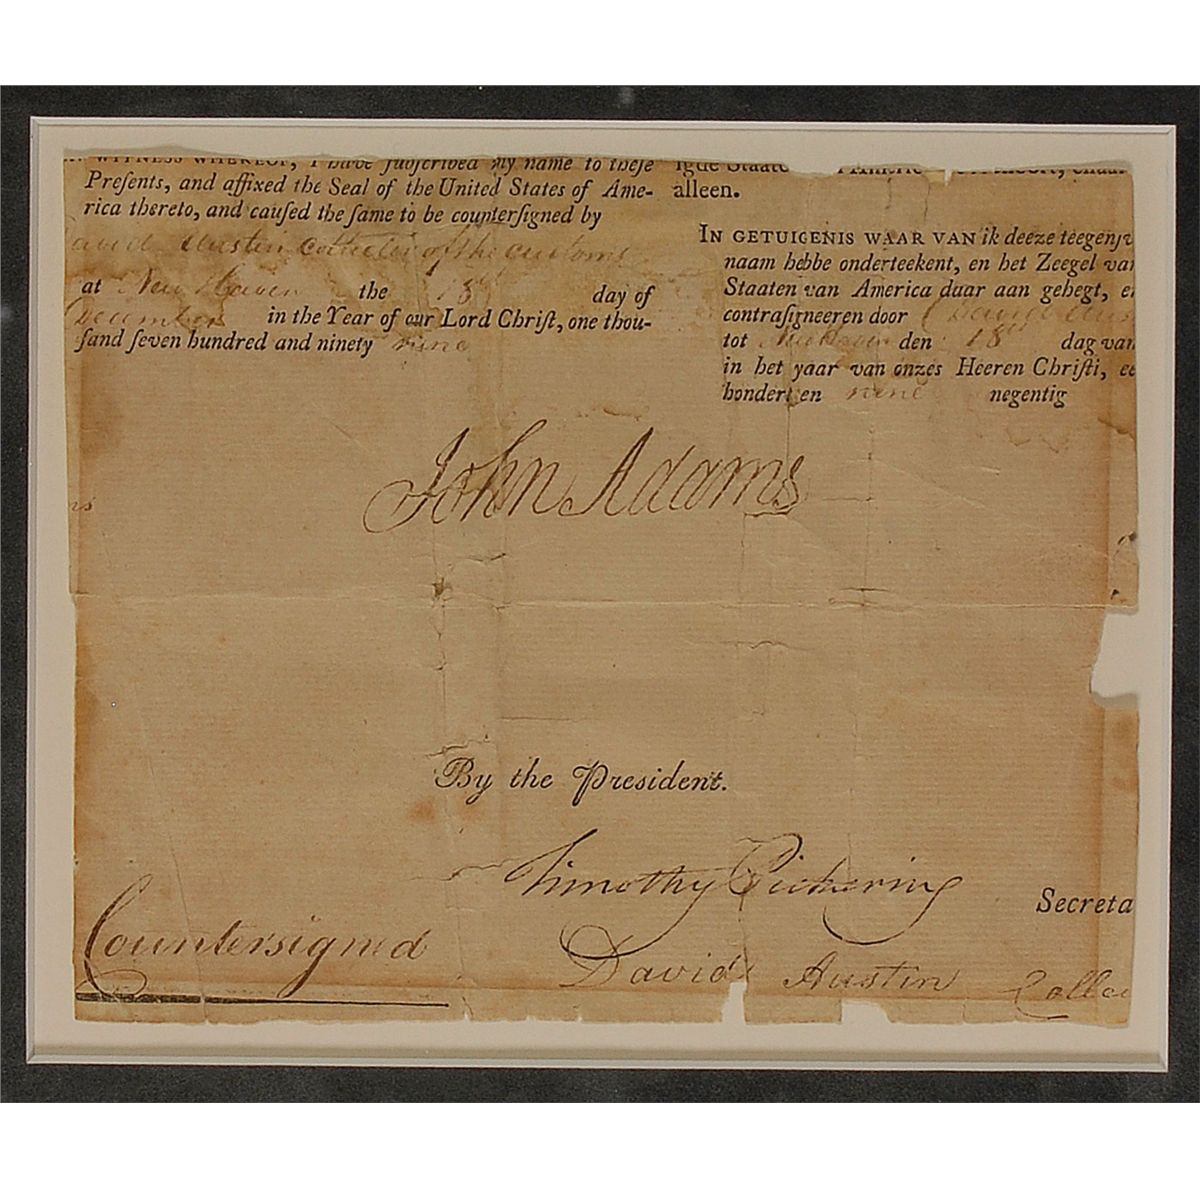 IN WITNESS WHEREOF, I have subscribed my name to these
Presents, and affixed the Seal of the United States of Ame-
rica thereto, and caused the same to be countersigned by
David Austin Collector of the customs
at New Haven the 18th day of
December in the Year of our Lord Christ, one thou-
sand seven hundred and ninety nine
alleen.
IN GETUIGENIS WAAR VAN ik deeze teegenw
naam hebbe onderteekent, en het Zeegel van
Staaten van America daar aan gehegt, en
contrasigneeren door David Aus
tot New Haven den 18th dag van
in het yaar van onzes Heeren Christi, ee
hondert en nine negentig
John Adams
By the President.
Timothy Pickering
Secreta
Countersigned
David Austin Collec